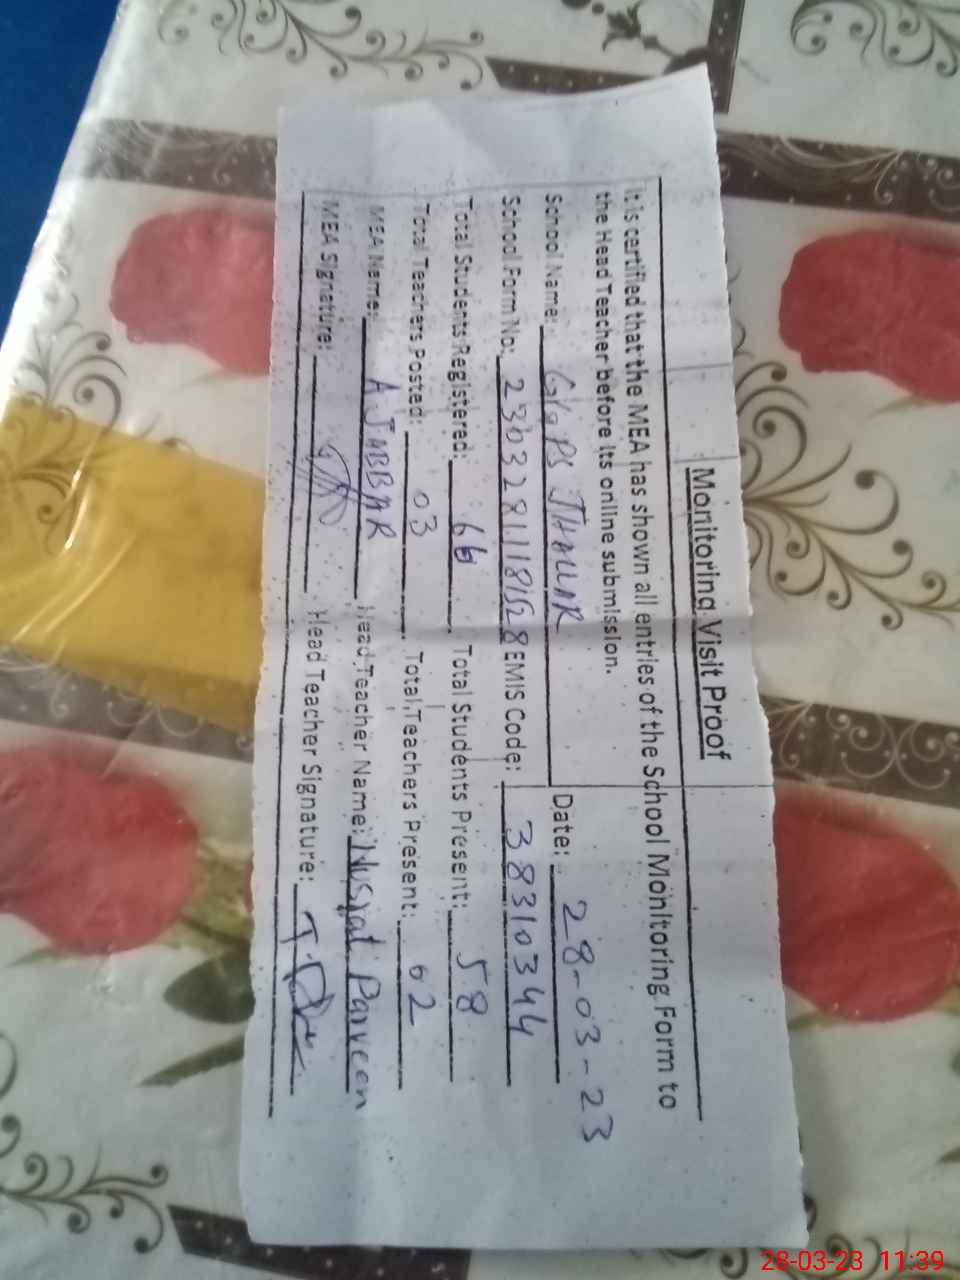 Monitoring Visit Proof
It is certified that the MEA has shown all entries of the School Monitoring Form to
the Head Teacher before its online submission.
School Name: GGPS JHALLAR Date: 28-03-23
School Form No: EMIS Code: 38310344
Total Students Registered: 66 Total Students Present: 58
Total Teachers Posted: 03 Total Teachers Present: 02
MEA Name: A JABBAR Head Teacher Name: Nusrat Parveen
MEA Signature: Head Teacher Signature:
28-03-23 11:39